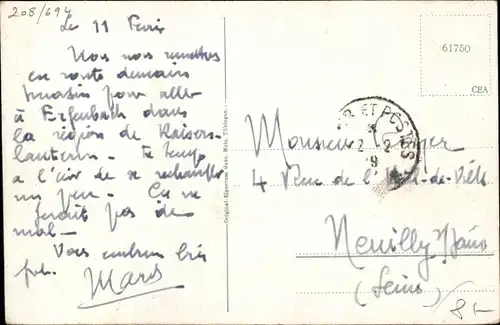 208/694
Le 11 Février
Nous nous remettons
en route demain
matin pour aller
à Erfenbach dans
la région de Kaisers-
lautern. Le temps
a l'air de se réchauffer
un peu. Ça ne
ferait pas de
mal.
Vous embrasse bien
Marc
Original-Eigentum Gebr. Metz, Tübingen
61750
CEA
ET POSTES
Monsieur
4 Rue de l'Hôtel-de-Ville
Neuilly s/Seine
(Seine)
8